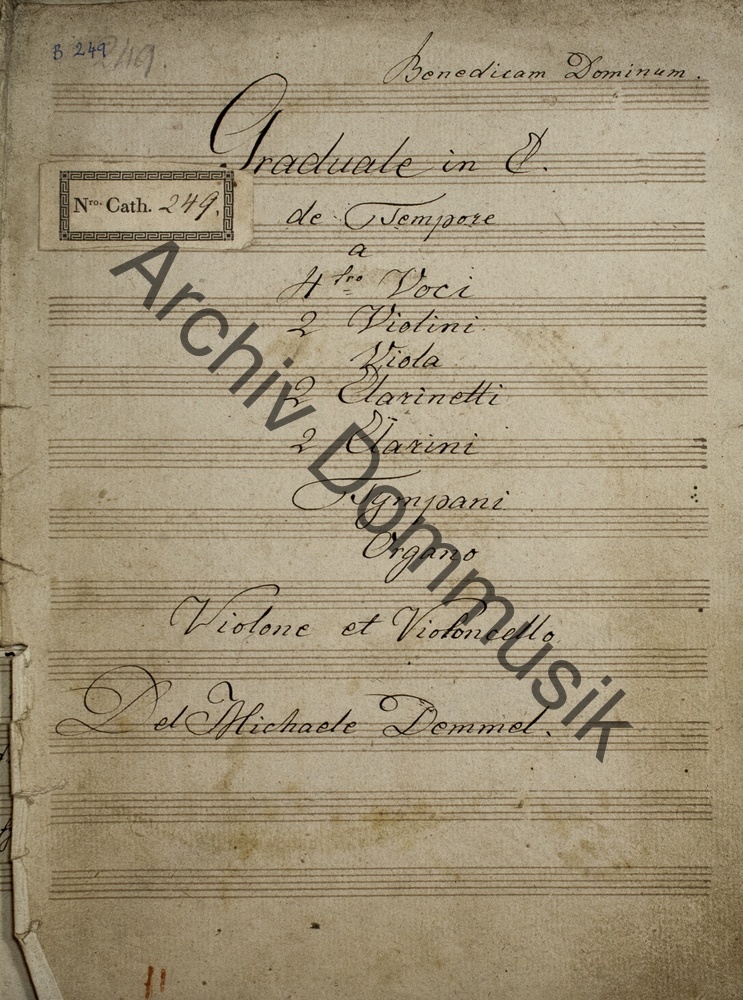 B 249
249.
Benedicam Dominum.
Graduale in C.
Nro. Cath. 249.
de Tempore
a
4tro Voci
2 Violini
Viola
2 Clarinetti
2 Clarini
Tympani
Organo
Violone et Violoncello
Del Michaele Demmel.
Archiv Dommusik